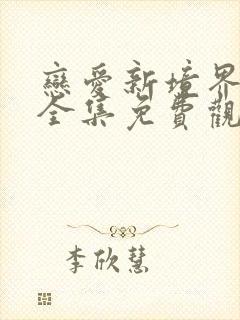 戀愛新境界
全集免費觀
李欣慧